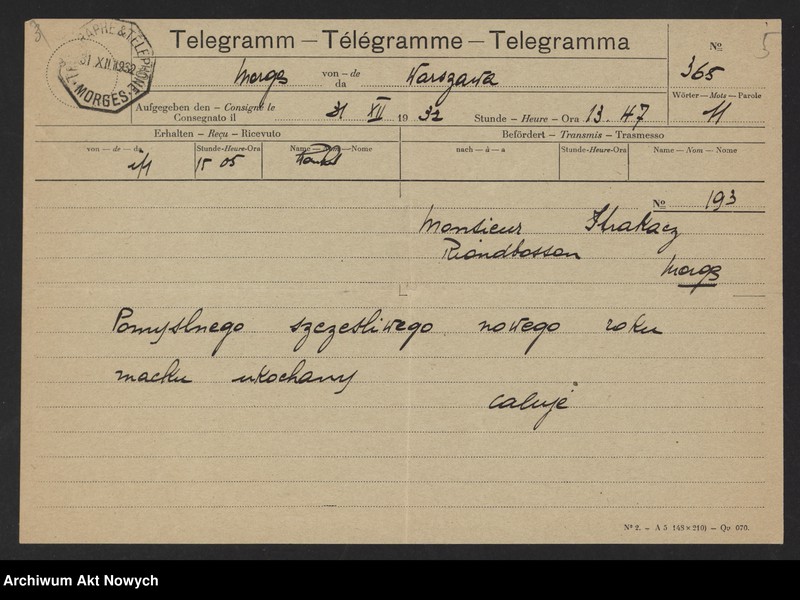 3
5
TELEGRAPHE & TELEPHONE
31 XII 1932
MORGES
Telegramm – Télégramme – Telegramma
Nº
365
Morges von – de da Warszawa
Wörter – Mots – Parole
11
Aufgegeben den – Consigné le
Consegnato il 31 XII 19 32 Stunde – Heure – Ora 13. 47
Erhalten – Reçu – Ricevuto
Befördert – Transmis – Trasmesso
von – de – da Stunde-Heure-Ora Name – Nom – Nome
nach – à – a Stunde-Heure-Ora Name – Nom – Nome
15 05
Nº 193
Monsieur Strakacz
Riondbosson
Morges
Pomyslnego szczesliwego nowego roku
macku ukochany
caluje
Nº 2. – A 5 (148 × 210) – Qp 070.
Archiwum Akt Nowych